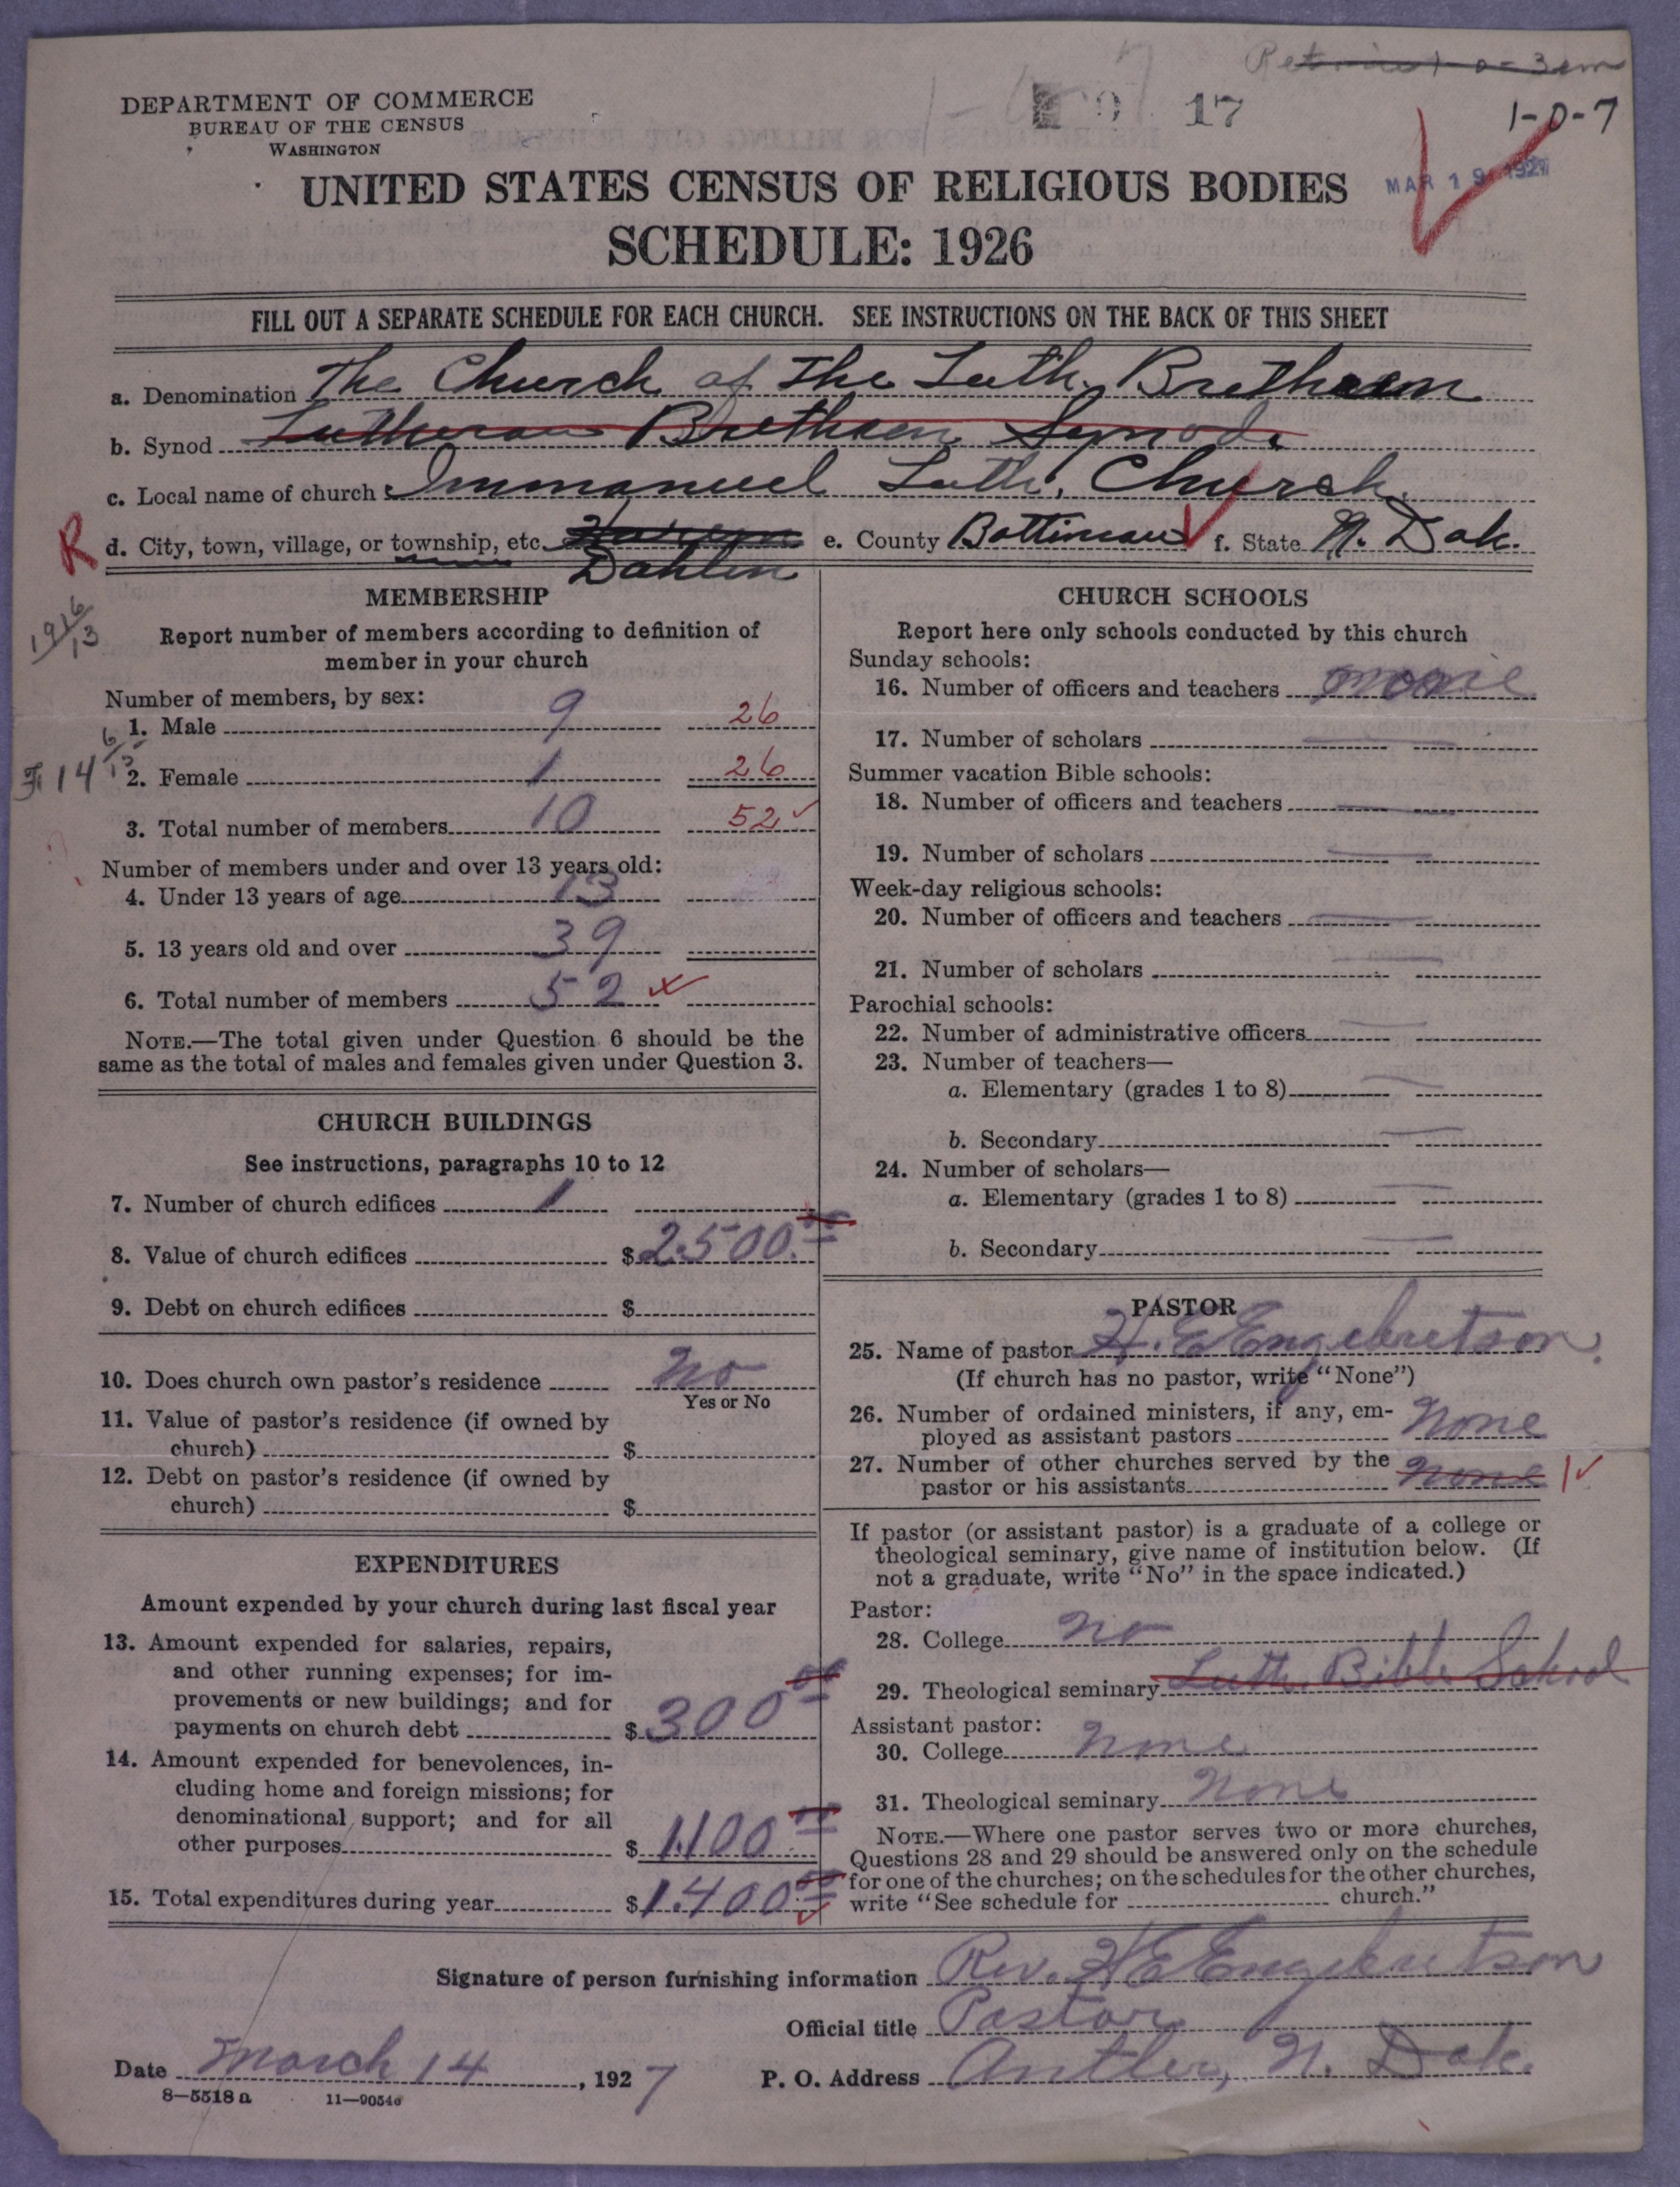 DEPARTMENT OF COMMERCE
BUREAU OF THE CENSUS
WASHINGTON
17
1-0-7
MAR 19 1927
UNITED STATES CENSUS OF RELIGIOUS BODIES
SCHEDULE: 1926
FILL OUT A SEPARATE SCHEDULE FOR EACH CHURCH. SEE INSTRUCTIONS ON THE BACK OF THIS SHEET
a. Denomination The Church of the Luth. Brethren
b. Synod Lutheran Brethren Synod.
c. Local name of church Immanuel Luth. Church.
R d. City, town, village, or township, etc. Dahlen e. County Bottineau f. State N. Dak.
MEMBERSHIP
Report number of members according to definition of
member in your church
Number of members, by sex:
1. Male 9 26
2. Female 1 26
3. Total number of members 10 52
Number of members under and over 13 years old:
4. Under 13 years of age 13
5. 13 years old and over 39
6. Total number of members 52
NOTE.—The total given under Question 6 should be the
same as the total of males and females given under Question 3.
CHURCH BUILDINGS
See instructions, paragraphs 10 to 12
7. Number of church edifices 1
8. Value of church edifices $2500.00
9. Debt on church edifices $
10. Does church own pastor's residence No
Yes or No
11. Value of pastor's residence (if owned by
church) $
12. Debt on pastor's residence (if owned by
church) $
EXPENDITURES
Amount expended by your church during last fiscal year
13. Amount expended for salaries, repairs,
and other running expenses; for im-
provements or new buildings; and for
payments on church debt $300 00
14. Amount expended for benevolences, in-
cluding home and foreign missions; for
denominational support; and for all
other purposes $1100 00
15. Total expenditures during year $1400 00
CHURCH SCHOOLS
Report here only schools conducted by this church
Sunday schools:
16. Number of officers and teachers none
17. Number of scholars
Summer vacation Bible schools:
18. Number of officers and teachers
19. Number of scholars
Week-day religious schools:
20. Number of officers and teachers
21. Number of scholars
Parochial schools:
22. Number of administrative officers
23. Number of teachers—
a. Elementary (grades 1 to 8)
b. Secondary
24. Number of scholars—
a. Elementary (grades 1 to 8)
b. Secondary
PASTOR
25. Name of pastor H. E Engebretson.
(If church has no pastor, write "None")
26. Number of ordained ministers, if any, em-
ployed as assistant pastors None
27. Number of other churches served by the
pastor or his assistants None 1
If pastor (or assistant pastor) is a graduate of a college or
theological seminary, give name of institution below. (If
not a graduate, write "No" in the space indicated.)
Pastor:
28. College No
29. Theological seminary Luth. Bible School
Assistant pastor:
30. College None
31. Theological seminary None
NOTE.—Where one pastor serves two or more churches,
Questions 28 and 29 should be answered only on the schedule
for one of the churches; on the schedules for the other churches,
write "See schedule for church."
Signature of person furnishing information Rev. H E Engebretson
Official title Pastor
Date March 14, 1927 P. O. Address Antler, N. Dak.
8—5518 a 11—9054